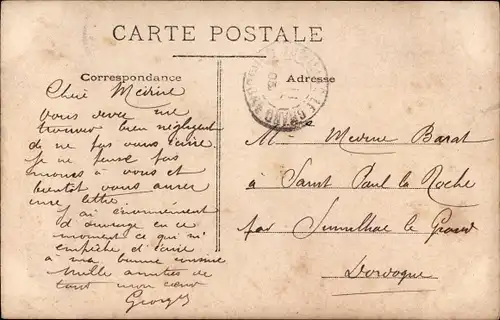 CARTE POSTALE
Correspondance
Adresse
Chère Médine
vous devez me
trouver bien négligent
de ne pas vous écrire
Je ne pense pas
moins à vous et
bientôt vous aurez
une lettre
J'ai énormément
d'ouvrage en ce
moment ce qui m'
empêche d'écrire
à ma bonne cousine
mille amitiés de
tout mon cœur
Georges
Médine Barat
à Saint Paul la Roche
par Jumilhac le Grand
Dordogne